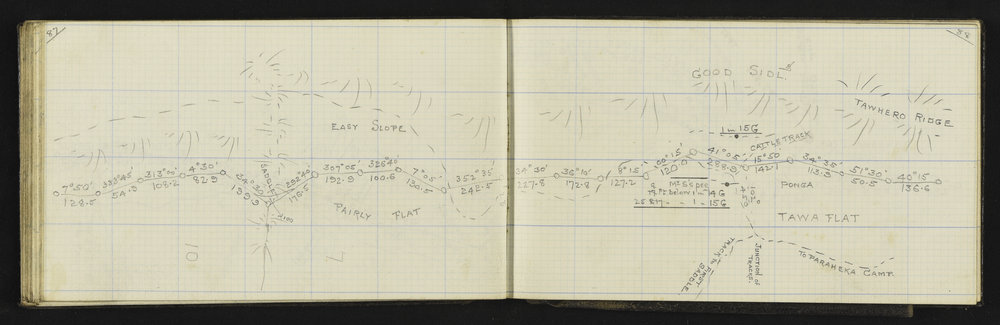 87
EASY SLOPE
7°50' 333°45' 313°00' 4°30' 307°05' 326°40' 7°05' 352°35'
128.5 54.3 108.2 82.9 199.9 175.5 192.9 100.6 130.5 242.5
SADDLE
FAIRLY FLAT
10 7
88
GOOD SIDL.
TAWHERO RIDGE
1m 15G
CATTLE TRACK
34°30' 36°10' 8°15' 60°15' 41°05' 15°50' 34°35' 51°30' 40°15'
227.8 172.8 127.2 120.0 288.9 142.1 113.9 50.5 136.6
PONGA
14G
1 - 15G
TAWA FLAT
TRACK to
SADDLE.
JUNCTION OF
TRACKS.
To PARAHEKA CAMP.